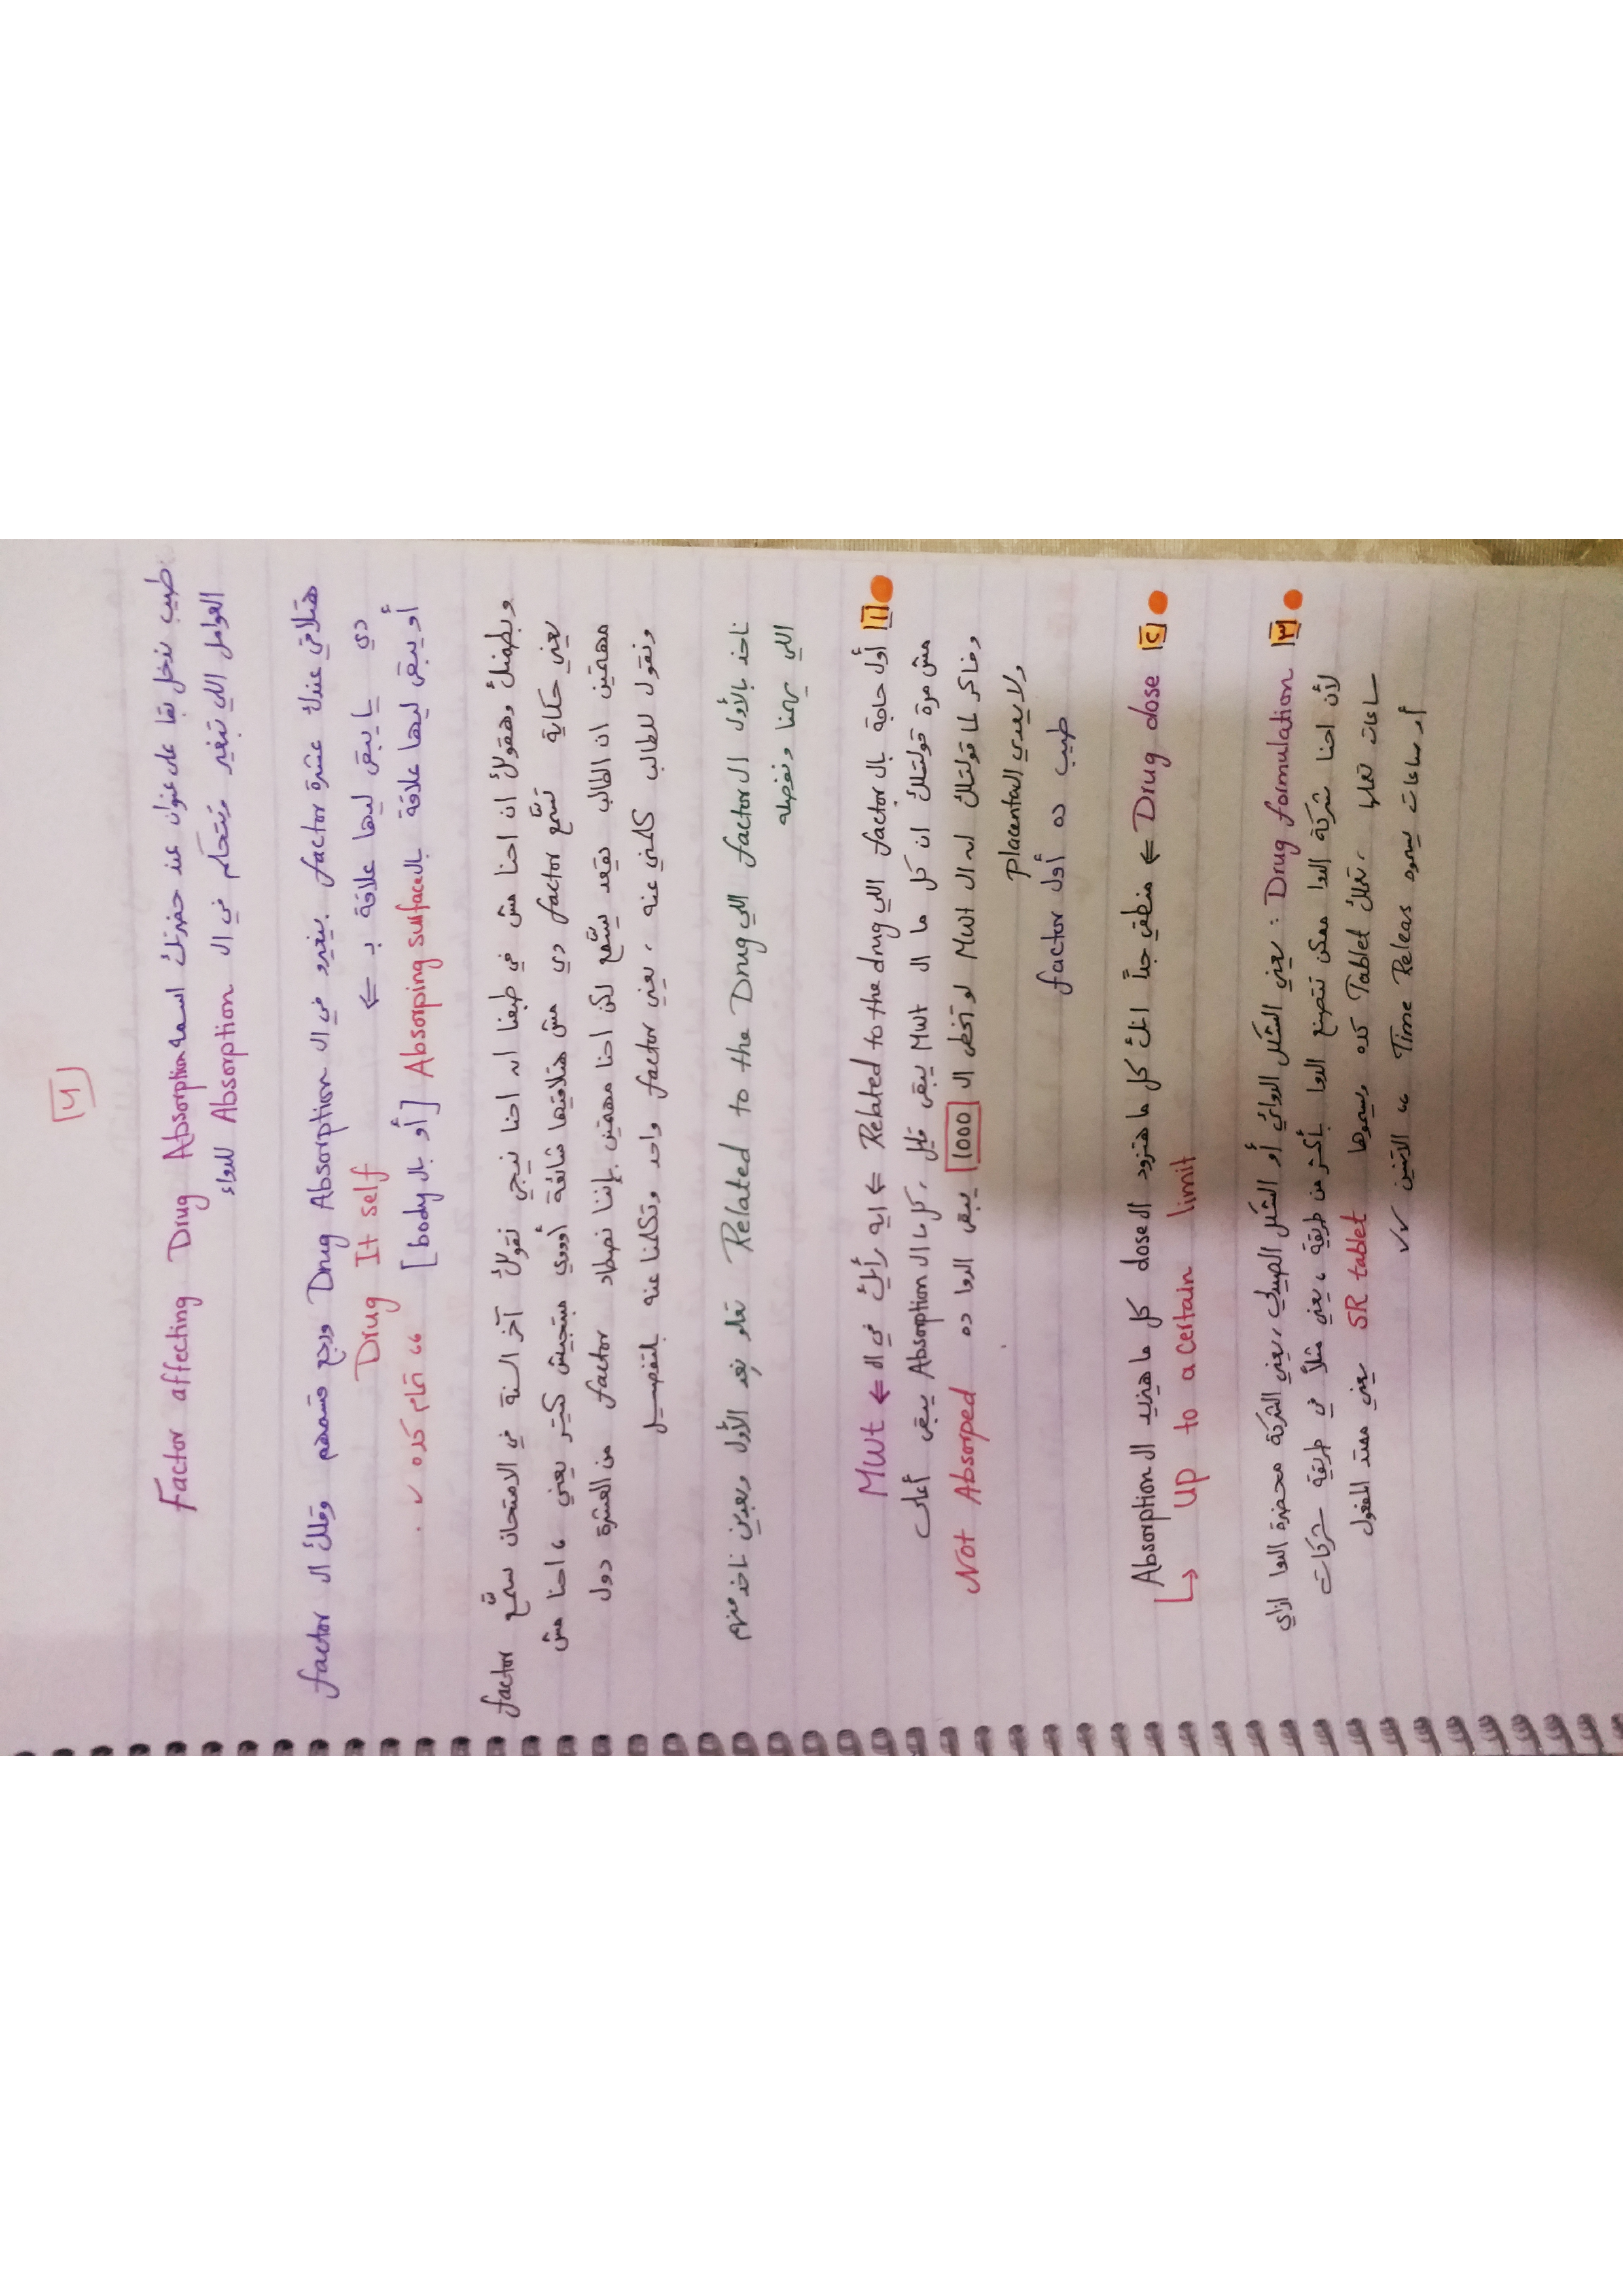 [4]
طيب ندخل بقا على عنوان عند حضرتك اسمه Factor affecting Drug Absorption
العوامل اللي تبغير وبتتحكم في ال Absorption للدواء
هتلاقي عندك عشرة factor بيغيرو في ال Drug Absorption ورجع قسمهم وقالك ال factor
دي يا يبقى ليها علاقة بـ ⇐ Drug It self
أو يبقى ليها علاقة بال Absorping surface [أو بال body] ،، تمام كده ✓
وبطمنك وهقولك ان احنا مش في طبعنا انه احنا نيجي نقولك آخر السنة في الامتحان سمّع factor
يعني حكاية تسّمع factor دي مش هتلاقيها شائعة أوووي مبتجيش كتير يعني ، احنا مش
مهمتين ان الطالب يقعد يسّمع لكن احنا مهمتين بإننا نصطاد factor من العشرة دول
ونقول للطالب كلمني عنه ، يعني factor واحد وتكلمنا عنه بالتفصيل
ناخد بالأول ال factor اللي Related to the Drug نعد الأول وبعدين ناخد منهم
اللي يهمنا ونفصله
[1] أول حاجة بال factor اللي Related to the drug ⇐ ايه رأيك في ال ⇐ MWt
مش مرة قولتلك ان كل ما ال MWt يبقى قليل ، كل ما ال Absorption يبقى أعلى
وفاكر لما قولتلك انه ال MWt لو تخطى ال 1000 يبقى الدوا ده Not Absorped
ولا يعدي ال placental
طيب ده أول factor
[2] Drug dose ⇐ منطقي جداً انك كل ما هتزود ال dose كل ما هيزيد ال Absorption
↳ UP to a certain limit
[3] Drug formulation : يعني الشكل الدوائي أو الشكل الصيدلي ، يعني الشركة محضرة الدوا ازاي
لأن احنا شركة الدوا ممكن تتصنع الدوا بأكتر من طريقة ، يعني مثلاً في طريقة شركات
ساعات تعملها ، تعملك Tablet كده ويسموها SR tablet يعني ممتد المفعول
أو ساعات يسموه Time Releas ،، الاتنين ✓✓